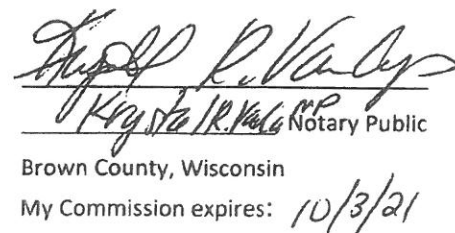 R. Van
Krystal R. Notary Public
Brown County, Wisconsin
My Commission expires: 10/3/21